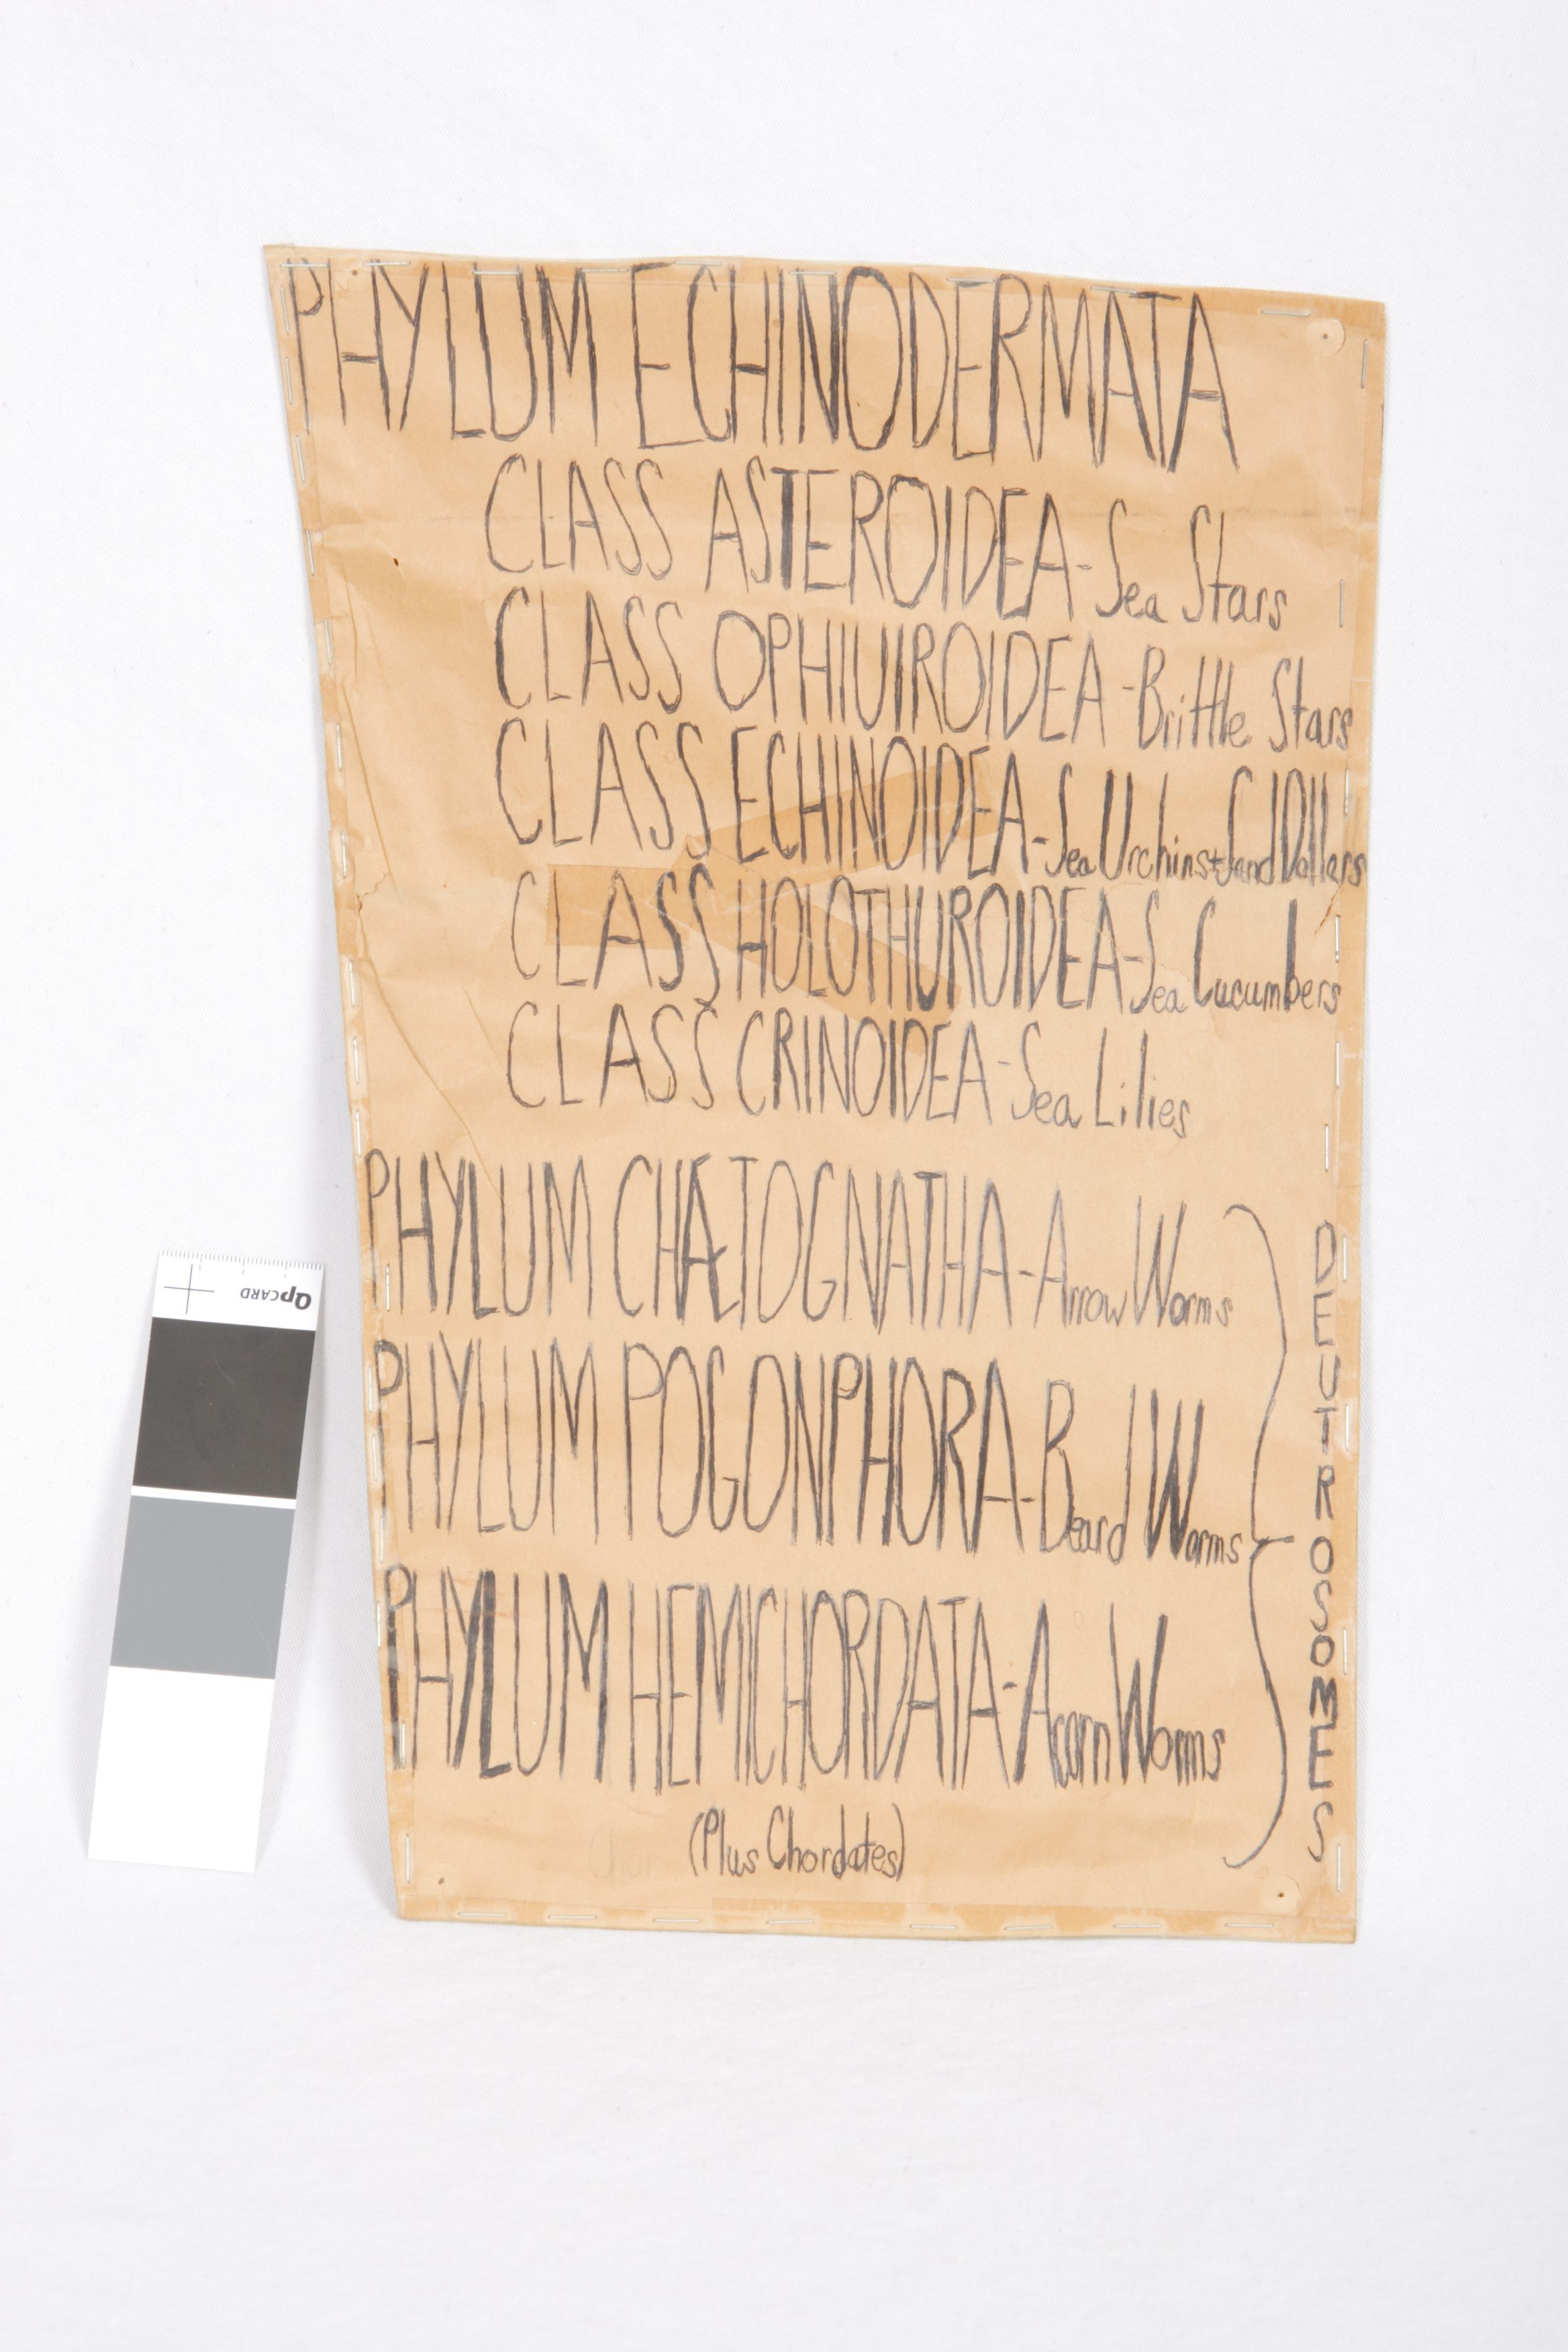 PHYLUM ECHINODERMATA
CLASS ASTEROIDEA - Sea Stars
CLASS OPHIUIROIDEA - Brittle Stars
CLASS ECHINOIDEA - Sea Urchins + Sand Dollars
CLASS HOLOTHUROIDEA - Sea Cucumbers
CLASS CRINOIDEA - Sea Lilies
PHYLUM CHÆTOGNATHA - Arrow Worms
PHYLUM POGONPHORA - Beard Worms
PHYLUM HEMICHORDATA - Acorn Worms
(Plus Chordates)
DEUTROSOMES
QPCARD